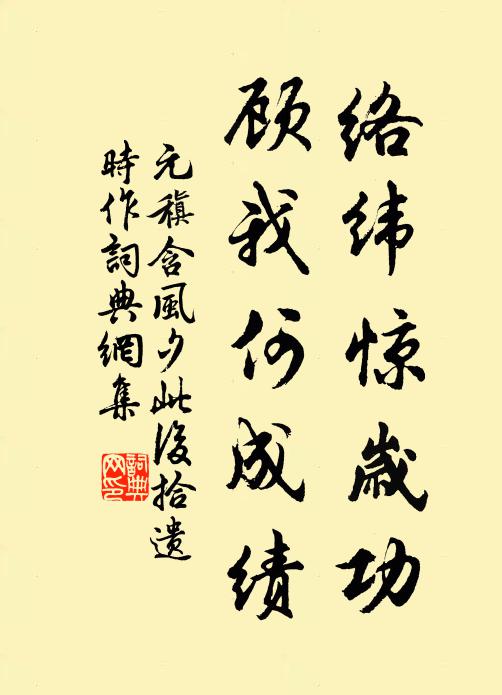 络纬惊岁功
顾我何成绩
元稹含風夕此後拾遗
時作詞典網集
詞典网印